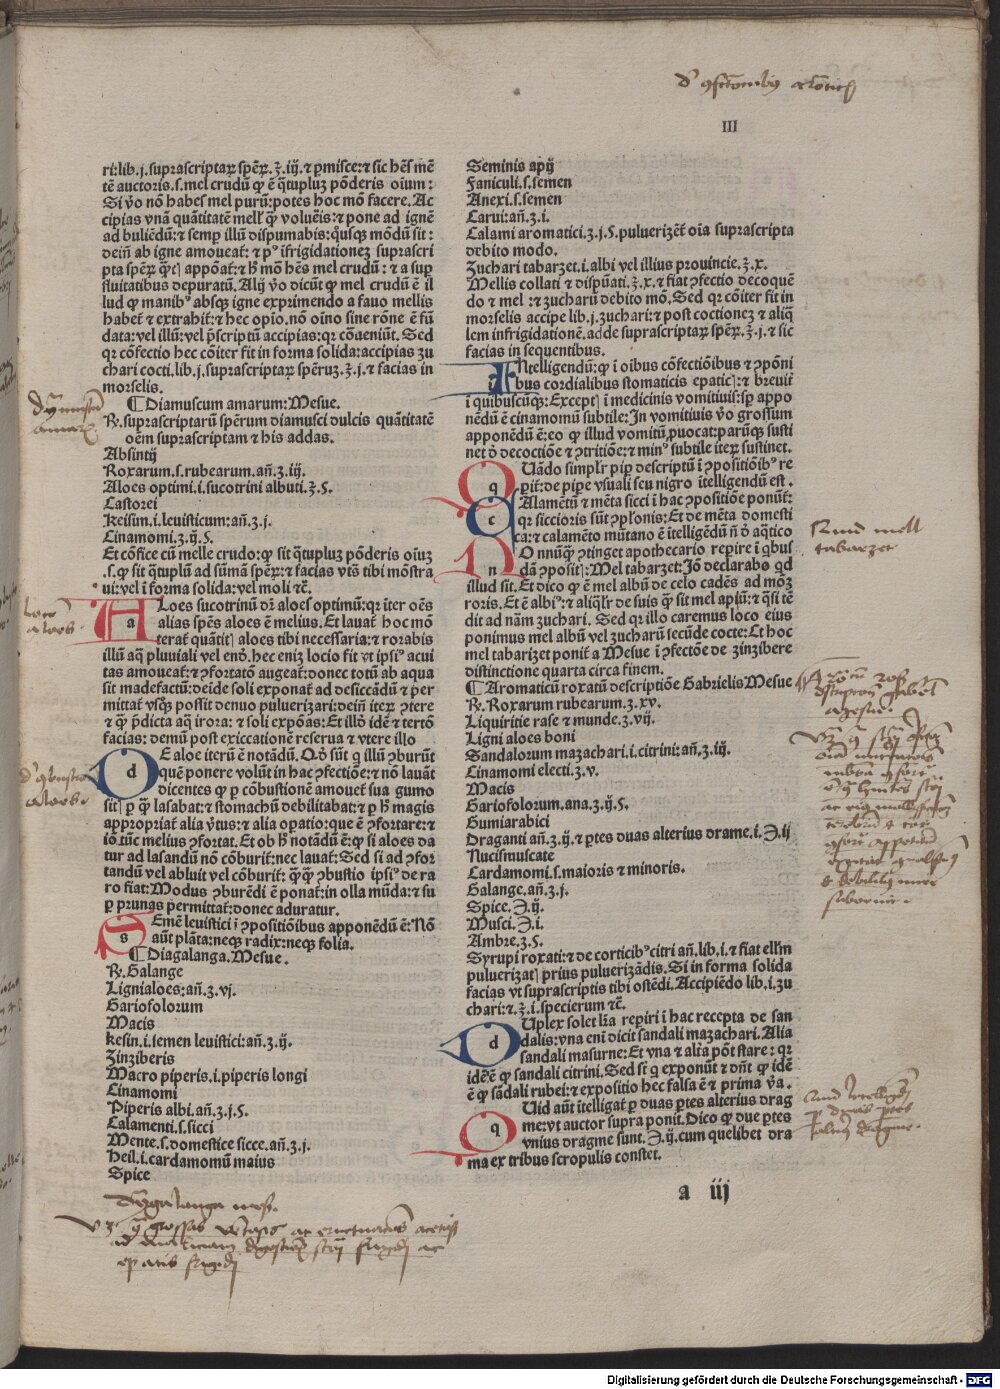 III
ri:lib.j.suprascriptaꝝ speꝝ.ʒ.iij.⁊ ꝑmisce:⁊ sic hẽs mẽ
tẽ auctoris.s.mel crudũ qđ ẽ q̃tupluʒ põderis oium:
Si ꝟo nõ habes mel purũ:potes hoc mõ facere. Ac
cipias vnã quãtitatẽ mell' qꝫ volueris:⁊ pone ad ignẽ
ad buliẽdũ:⁊ semꝑ illũ dispumabis:qusqꝫ mõdũ sit:
dein̄ ab igne amoueat̃:⁊ p' ĩfrigidationeʒ suprascri
pta speꝝ q̃ꝫ appõat̃:⁊ h̃ mõ hẽs mel crudũ:⁊ a sup
fluitatibus depuratũ. Alij ꝟo dicũt qđ mel crudũ ẽ il
lud qđ manib' absqꝫ igne exprimendo a fauo mellis
habet̃ ⁊ extrahit̃:⁊ hec opio.nõ oĩno sine rõne ẽ fũ
data:vel illũ:vel p̃scriptũ accipias:qr cõueniũt. Sed
qr cõfectio hec cõiter fit in forma solida:accipias zu
chari cocti.lib.j.suprascriptaꝝ speruʒ.ʒ.j.⁊ facias in
morselis.
¶ Diamuscum amarum:Mesue.
℞.suprascriptarũ sperum diamusci dulcis quãtitatẽ
oẽm suprascriptam ⁊ his addas.
Absintij
Roxarum.s.rubearum.añ.ʒ.iij.
Aloes optimi.i.sucotrini albuti.ʒ.ſ.
Castorei
Keisim.i.leuisticum:añ.ʒ.j.
Cinamomi.ʒ.ij.ſ.
Et cõfice cũ melle crudo:qđ sit q̃tupluʒ põderis oiuʒ
.s.qđ sit q̃tuplũ ad sũmã speꝝ:⁊ facias vts̃ tibi mõstra
ui:vel ĩ forma solida:vel moli ⁊c̃.
ALoes sucotrinũ dr̃ aloes optimũ:qr iter oẽs
a alias spẽs aloes ẽ melius. Et lauat̃ hoc mõ
terat̃ quãtitꝫ aloes tibi necessaria:⁊ rorabis
illũ aq̃ pluuiali vel enđ.hec eniʒ locio fit vt ipsi' acui
tas amoueat̃:⁊ ꝯfortatõ augeat̃:donec totũ ab aqua
sit madefactũ:deĩde soli exponat̃ ad desiccãdũ ⁊ ꝑer
mittat̃ vsqꝫ possit denuo pulueriʒari:dein̄ iteꝝ ꝯtere
⁊ q̃ p̃dicta aq̃ irora:⁊ soli expõas:Et illđ idẽ ⁊ tertõ
facias:demũ post exiccationẽ reserua ⁊ vtere illo
DE aloe iterũ ẽ notãdũ. Qđ sũt q illũ ꝯburũt
d quẽ ponere volũt in hac ꝯfectiõe:⁊ nõ lauãt
dicentes qđ ꝑ cõbustionẽ amouet̃ sua gumo
sitꝫ ꝑ q̃ lasabat̃:⁊ stomachũ debilitabat̃:⁊ ꝑ h̃ magis
appropriat̃ alia ꝟtus:⁊ alia oꝑatio:que ẽ ꝯfortare:⁊
iõ tũc melius ꝯfortat. Et ob h̃ notãdũ ẽ:qđ si aloes da
tur ad lasandũ nõ cõburit̃:nec lauat̃: Sed si ad ꝯfor
tandũ vel abluit̃ vel cõburit̃: q̃q̃ ꝯbustio ipsi' de ra
ro fiat:Modus ꝯburẽdi ẽ ponat̃:in olla mũda:⁊ su
ꝑ prunas permittat̃:donec aduratur.
SEmẽ leuistici ĩ ꝯpositiõibus apponẽdũ ẽ: Nõ
s aũt plãta:neqꝫ radix:neqꝫ folia.
¶ Diagalanga.Mesue.
℞.Galange
Lignialoes:añ.ʒ.vj.
Gariofolorum
Macis
Kesin.i.semen leuistici:añ.ʒ.ij.
Zinziberis
Macro piperis.i.piperis longi
Cinamomi
Piperis albi.añ.ʒ.j.ſ.
Calamenti.s.sicci
Mente.s.domestice sicce.añ.ʒ.j.
Heil.i.cardamomũ maius
Spice
Seminis apij
Faniculi.s.semen
Anexi.s.semen
Carui:añ.ʒ.i.
Calami aromatici.ʒ.j.ſ.pulueriʒẽt̃ oia suprascripta
debito modo.
Zuchari tabarzet.i.albi vel illius prouincie.ʒ.x.
Mellis collati ⁊ dispũati.ʒ.x.⁊ fiat ꝯfectio decoquẽ
do ⁊ mel:⁊ zucharũ debito mõ. Sed qr cõiter fit in
morselis accipe lib.j.zuchari:⁊ post coctioneʒ ⁊ aliq̃
lem infrigidationẽ.adde suprascriptaꝝ speꝝ.ʒ.j.⁊ sic
facias in sequentibus.
INtelligendũ:qđ ĩ oibus cõfectiõibus ⁊ ꝯpõni
i bus cordialibus stomaticis epaticꝫ:⁊ breuit̃
ĩ quibuscũqꝫ:Exceptꝫ ĩ medicinis vomitiuis:sp appo
nẽdũ ẽ cinamomũ subtile:In vomitiuis ꝟo grossum
apponẽdũ ẽ:eo qđ illud vomitũ ꝓuocat:parũqꝫ susti
net đ decoctiõe ⁊ ꝯtritiõe:⁊ min' subtile iteꝝ sustinet.
QUãdo simplr pip descriptũ ĩ ꝯpositiõib' re
q pit̃:de pipe vsuali seu nigro ĩtelligendũ est.
CAlamẽtũ ⁊ mẽta sicci ĩ hac ꝯpositiõe ponũt̃:
c qr siccioris sũt ꝯplonis:Et de mẽta domesti
ca:⁊ calamẽto mũtano ẽ ĩtelligẽdũ ñ đ aq̃tico
NO nnũq̃ ꝯtinget apothecario reꝑire ĩ qbus
n dã ꝯposit̃:Mel tabarzet:Iõ declarabo qđ
illud sit. Et dico qđ ẽ mel albũ de celo cadẽs ad moʒ
roris. Et ẽ albi':⁊ aliq̃lr de suis q̃ sit mel apiũ:⁊ q̃si tẽ
dit ad nãm zuchari. Sed qr illo caremus loco eius
ponimus mel albũ vel zucharũ secũde cocte:Et hoc
mel tabarizet ponit̃ a Mesue ĩ ꝯfectõe de zinzibere
distinctione quarta circa finem.
¶ Aromaticũ roxatũ descriptiõe Gabrielis Mesue
℞.Roxarum rubearum.ʒ.xv.
Liquiritie rase ⁊ munde.ʒ.vij.
Ligni aloes boni
Sandalorum mazachari.i.citrini:añ.ʒ.iij.
Cinamomi electi.ʒ.v.
Macis
Gariofolorum.ana.ʒ.ij.ſ.
Gumiarabici
Draganti añ.ʒ.ij.⁊ ꝑtes duas alterius drame.i.℈.ij
Nucismuscate
Cardamomi.s.maioris ⁊ minoris.
Galange.añ.ʒ.j.
Spice.℈.ij.
Musci.℈.i.
Ambre.ʒ.ſ.
Syrupi roxati:⁊ de corticib' citri añ.lib.i.⁊ fiat ellm̃
pulueriʒatꝫ prius pulueriʒãdis. Si in forma solida
facias vt suprascriptis tibi ostẽdi. Accipiẽdo lib.i.zu
chari:⁊.ʒ.i.specierum ⁊c̃.
DUplex solet lr̃a reꝑiri ĩ hac recepta de san
d dalis:vna enĩ dicit sandali mazachari. Alia
sandali masurne:Et vna ⁊ alr̃a põt stare:qr
idẽ ẽ qđ sandali citrini. Sed sĩ q exponũt ⁊ dñt qđ idẽ
ẽ qđ sãdali rubei:⁊ expositio hec falsa ẽ ⁊ prima ꝟa.
QUid aũt ĩtelligat̃ ꝑ duas ꝑtes alterius drag
q me:vt auctor supra ponit. Dico qđ due ꝑtes
vnius dragme sunt.℈.ij.cum quelibet dra
ma ex tribus scropulis constet.
a iij
Digitalisierung gefördert durch die Deutsche Forschungsgemeinschaft - DFG